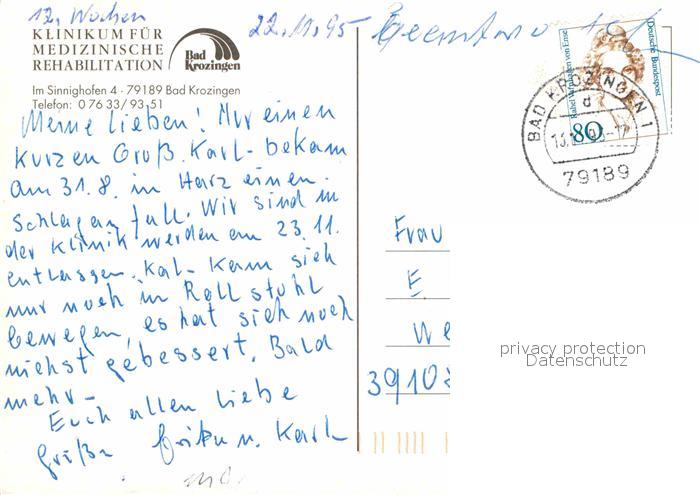 12. Wochen
22.11.95
KLINIKUM FÜR
MEDIZINISCHE
REHABILITATION
Bad
Krozingen
Im Sinnighofen 4 · 79189 Bad Krozingen
Telefon: 0 76 33/ 93 51
Meine Lieben! Nur einen
kurzen Gruß. Karl- bekam
am 31.8. in Harz einen
Schlagan fall. Wir sind in
der Klinik werden am 23.11.
entlassen. Kal- kam sich
nur noch in Rollstuhl
bewegen, es hat sich noch
nichst gebessert. Bald
mehr-
Euch allen liebe
Grüße u. Karl
Deutsche Bundespost
Rahel Varnhagen von Ense
80
BAD KROZINGEN 1
d
79189
Frau
E
We
39108
privacy protection
Datenschutz